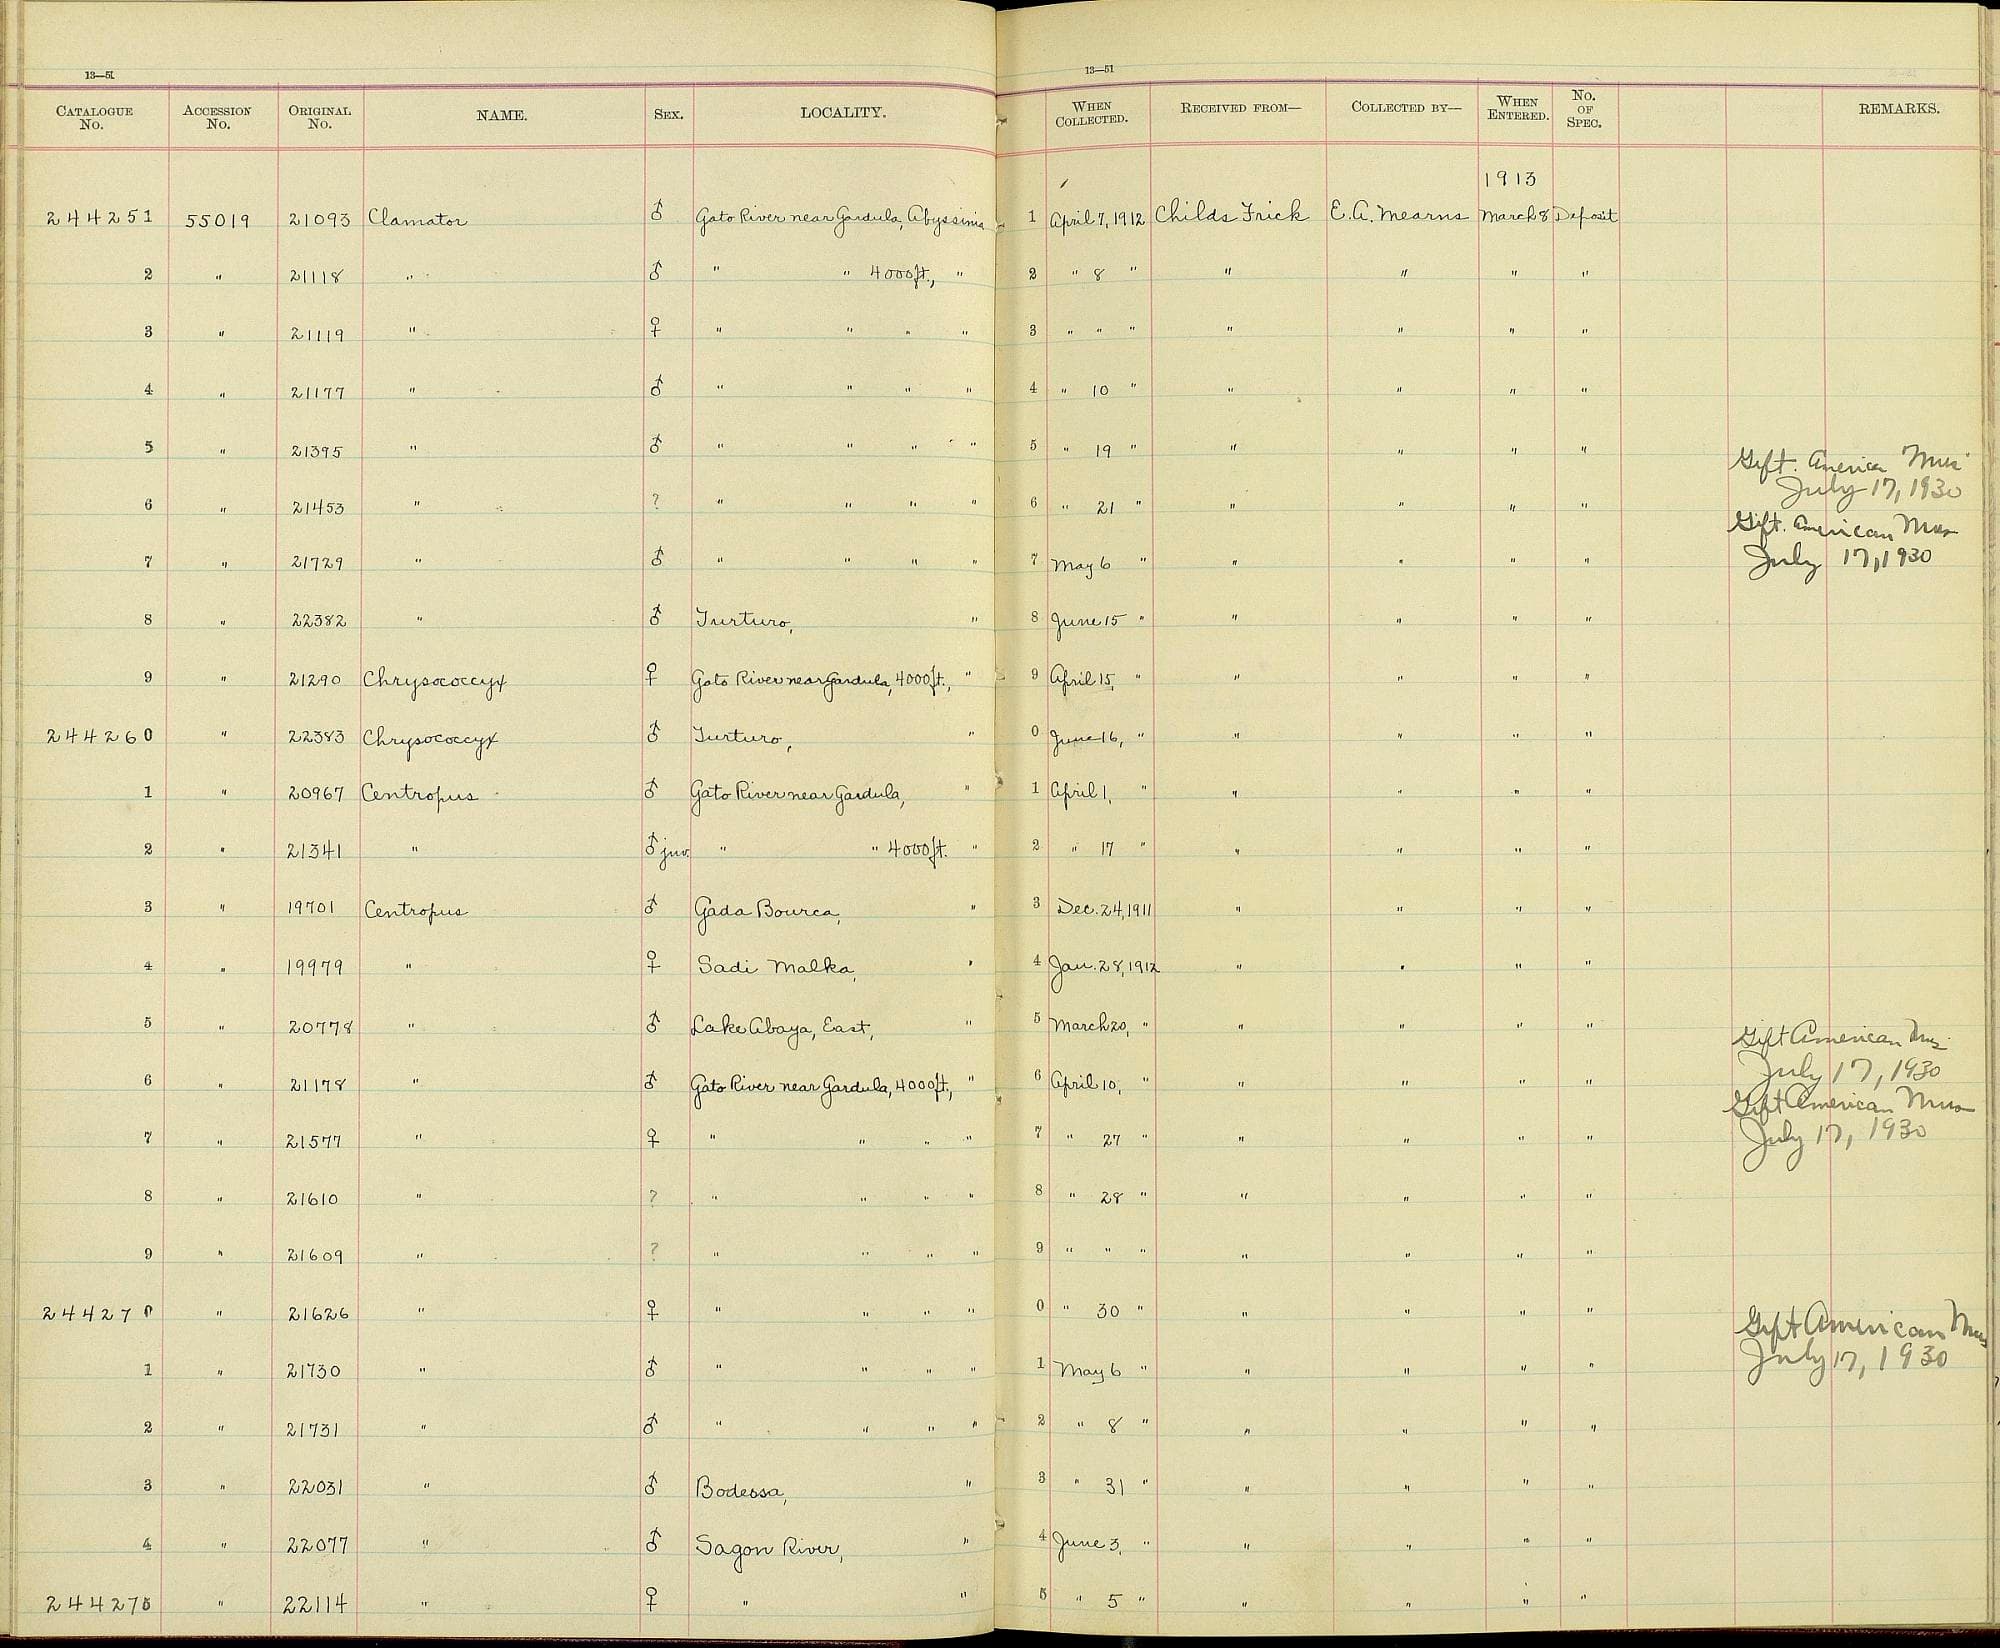 13—51
CATALOGUE No. ACCESSION No. ORIGINAL No. NAME. SEX. LOCALITY.
244251 55019 21093 Clamator ♂ Gato River near Gardula, Abyssinia
2 " 21118 " ♂ " " 4000ft., "
3 " 21119 " ♀ " " " "
4 " 21177 " ♂ " " " "
5 " 21395 " ♂ " " " "
6 " 21453 " ? " " " "
7 " 21729 " ♂ " " " "
8 " 22382 " ♂ Turturo, "
9 " 21290 Chrysococcyx ♀ Gato River near Gardula, 4000ft., "
244260 " 22383 Chrysococcyx ♂ Turturo, "
1 " 20967 Centropus ♂ Gato River near Gardula, "
2 " 21341 " ♂ juv. " " 4000ft. "
3 " 19701 Centropus ♂ Gada Bourca, "
4 " 19979 " ♀ Sadi Malka, "
5 " 20778 " ♂ Lake Abaya, East, "
6 " 21178 " ♂ Gato River near Gardula, 4000ft., "
7 " 21577 " ♀ " " " "
8 " 21610 " ? " " " "
9 " 21609 " ? " " " "
244270 " 21626 " ♀ " " " "
1 " 21730 " ♂ " " " "
2 " 21731 " ♂ " " " "
3 " 22031 " ♂ Bodessa, "
4 " 22077 " ♂ Sagon River, "
244275 " 22114 " ♀ " "
13—51
WHEN COLLECTED. RECEIVED FROM— COLLECTED BY— WHEN ENTERED. No. OF SPEC. REMARKS.
1913
1 April 7, 1912 Childs Frick E. A. Mearns March 8 Deposit
2 " 8 " " " " "
3 " " " " " " "
4 " 10 " " " " "
5 " 19 " " " " "
Gift. American Mus
July 17, 1930
6 " 21 " " " " "
Gift. American Mus
July 17, 1930
7 May 6 " " " " "
8 June 15 " " " " "
9 April 15, " " " " "
0 June 16, " " " " "
1 April 1, " " " " "
2 " 17 " " " " "
3 Dec. 24, 1911 " " " "
4 Jan. 28, 1912 " " " "
5 March 20, " " " " "
Gift American Mus
July 17, 1930
6 April 10, " " " " "
Gift American Mus
July 17, 1930
7 " 27 " " " " "
8 " 28 " " " " "
9 " " " " " " "
0 " 30 " " " " "
Gift American Mus
July 17, 1930
1 May 6 " " " " "
2 " 8 " " " " "
3 " 31 " " " " "
4 June 3, " " " " "
5 " 5 " " " " "